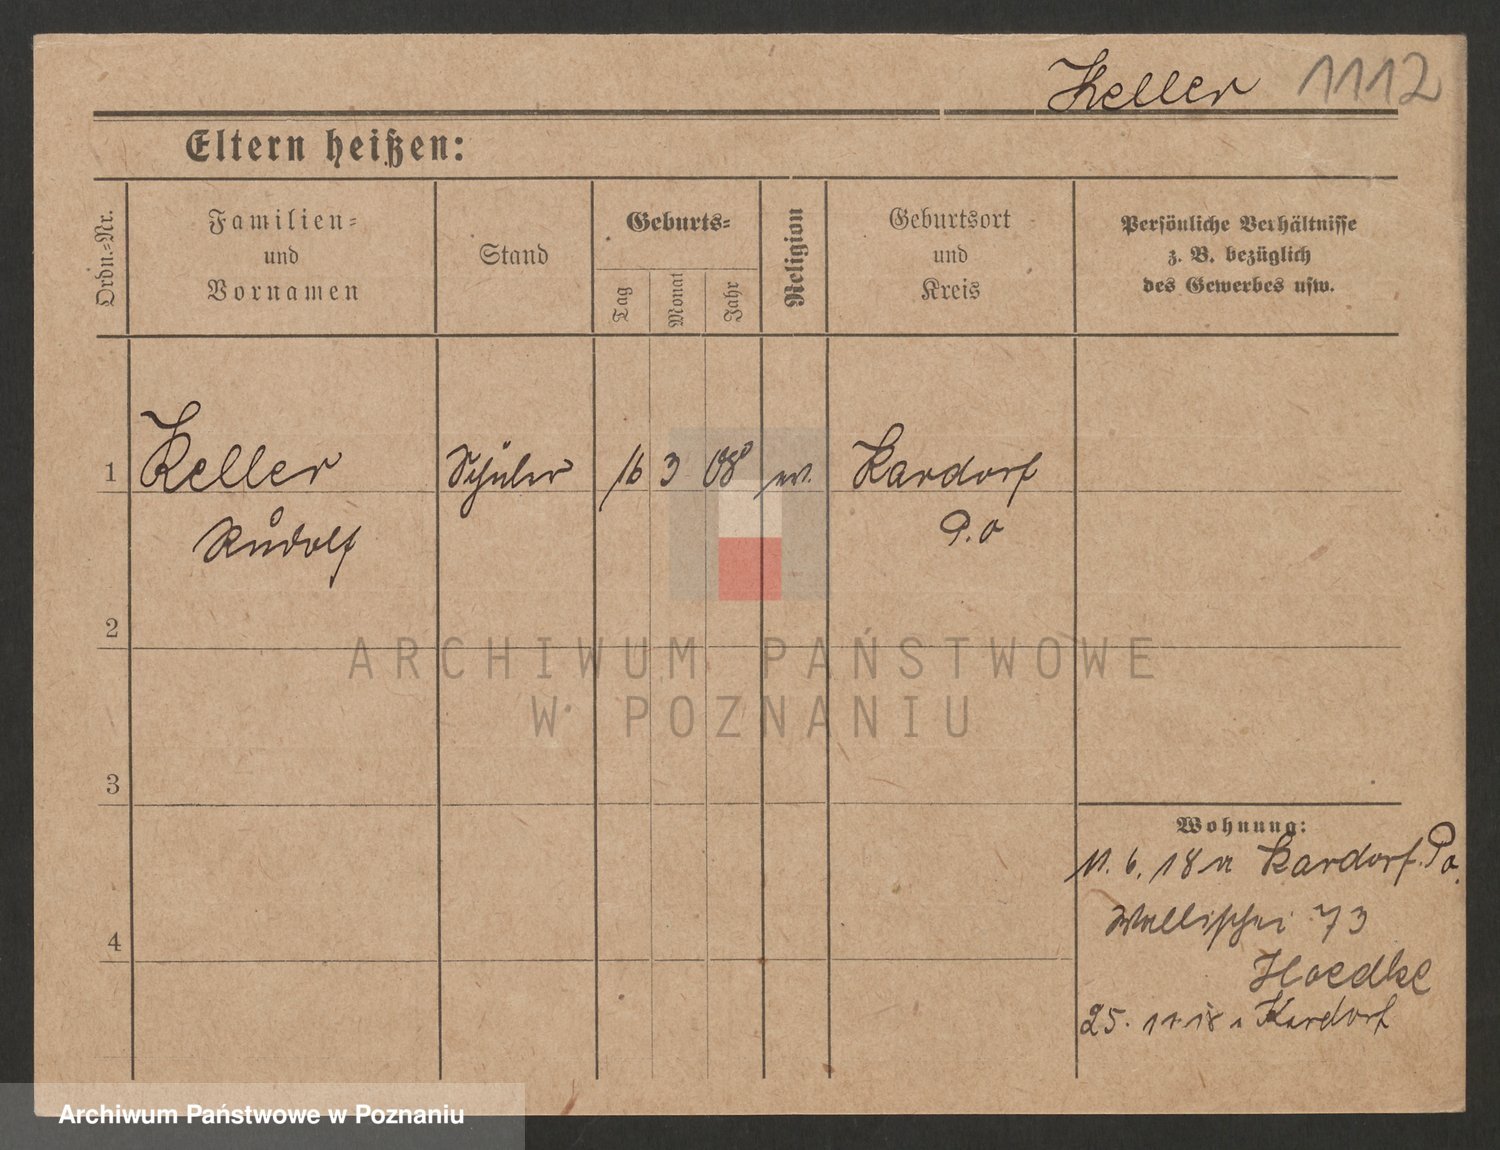 Keller 1112
Eltern heißen:
Ordn.-Nr.
Familien-
und
Vornamen
Stand
Geburts-
Tag
Monat
Jahr
Religion
Geburtsort
und
Kreis
Persönliche Verhältnisse
z. B. bezüglich
des Gewerbes usw.
1 Keller Schüler 16 3 08 ev. Kardorf
Rudolf P.O
2
3
4
Wohnung:
11. 6. 18 Kardorf. Po.
Wallischei 73
Hoedke
25. 11 18 Kardorf
ARCHIWUM PAŃSTWOWE
W POZNANIU
Archiwum Państwowe w Poznaniu